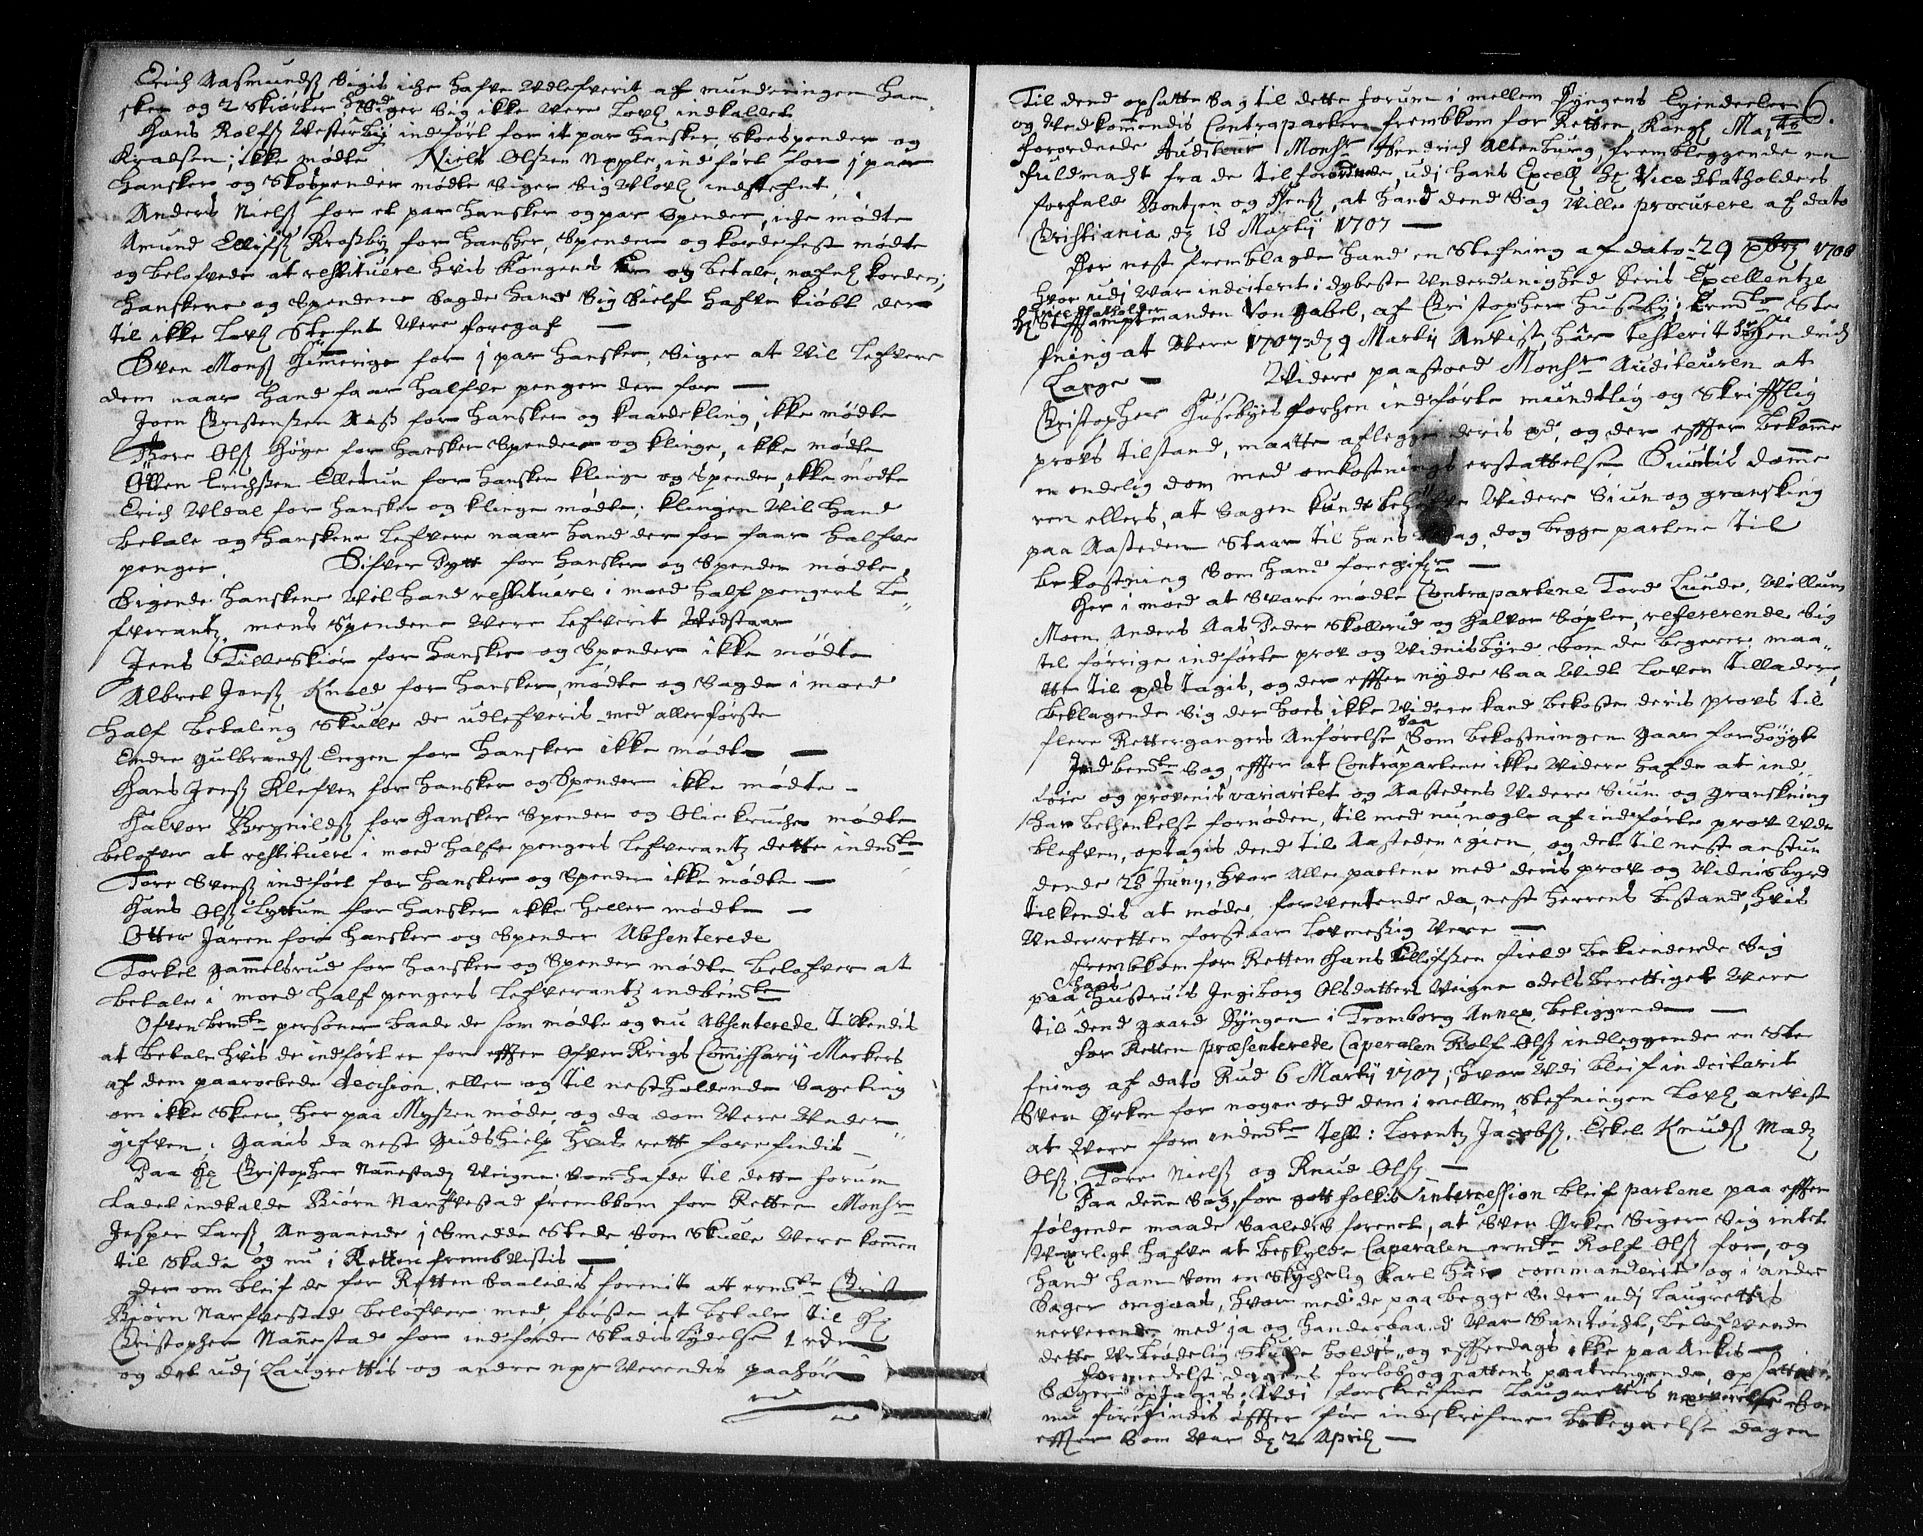 Erich Rasmunds: Sigis iche hafve Udlefverit af munderingen han-
sker og 2 Skiorter, hand Siger Sig ikke Vere Lovl: indkallet
Hans Rolfs: Vesterby indført for it par hansker, Skoespender og
Kradsen; ikke mødte Niels Olssen Nyple, indført for j par
hansker og Skospender mødte Siger Sig Ulovl: indstefnt,
Anders Niels: for et par hansker og par Spender, iche mødte
Amund Ellifs: Krosby for hansker, Spender og kordefeste mødte
og belofvede at restituere hvis Kongens er og betale, nafnl: korden;
hanskerne og Spenderne Sagde hand Sig Sielf hafve kiøbt der
til ikke Lovl: Stefnt Vere foregaf —
Sven Mons: Himerige for j par hansker, Siger at Vil lefvere
dem naar hand faar halfve penger der for —
Joen Christensen Aass for hansker og kaardekling, ikke mødte
Thore Ols: Høye for hansker Spender og klinge, ikke mødte
Often Erichssen Ellestun for hansker klinge og Spender, ikke mødte
Erich Uldal for hansker og klinge mødte; klingen Vil hand
betale og hanskene lefvere naar hand der for faar halfve
penger. Sifver Dytt for hansker og Spender mødte
Sigende hanskene Vil hand restituere i moed half pengers Le-
fverantz, mens Spenderne Vere lefverit Vedstaar
Jens Tilleskiør for hansker og Spender ikke mødte
Albret Jens: Knold for hansker, mødte og Sagde i moed
half betaling Skulle de udlefveris med allerførste
Endre gulbrands: Engen for hansker ikke mødte —
Hans Jens: Klefven for hansker og Spender ikke mødte —
Halvor Brynilds: for hansker Spender og Olie kruche mødte
belofver at restituere i moed halfe pengers lefverantz dette indmte
Tore Svens: indført for hansker og Spender ikke mødte —
Hans Ols: Lyttum for hansker ikke heller mødte —
Otter Jaren for hansker og Spender Absenterede
Torkel gammelsrud for hansker og Spender mødte belofver at
betale i moed half pengers lefverantz indbemte
Ofvenbemte personer baade de som mødte og nu Absenterede tilkendis
at betale hvis de indført er for effter Ofver Krigs Commissarij Merkers
af dem paaroebede decision, eller og til nestholdende Sageting
om ikke Skeer, her paa Myssen møde, og da dom Vere Under-
gifven; Gaais da nest Guds hielp hvis rett forefindis —
Paa Hr: Christopher Nannestads Veigne som hafde til dette forum
ladet indkalde Biørn Narfvestad frembkom for Retten Monsr
Jesper Lars: Angaaende j Smedde Stede Som Skulle Vere kommen
til Skade og nu i Retten frembVistis —
Der om bleif de for Retten Saaledis forenit att ermte
Biørn Narfvestad belofver med, første at betale til Hr:
Christopher Nannestad for indforde Skadis Lydelse 1 rdr
og det udj Laugrettis og andre nerverendis paahør

6.
Til dend opsatte Sag til dette forum i mellem Hyngens Eyendeeler
og Vedkommendis Contraparter frembkom for Retten, Kongl: Maytts
forordnede Auditeur Monsr Hendrich Altenburg, frembleggende en
fuldmacht fra de tilforordnede, udj Hans Excell: Hr: Vice Statholders
forfald Bontzen og Hens:, at hand dend Sag Ville procurere af dato
Christiania d: 18 Martij 1707 —
Her nest fremblagde hand en Stefning af dato 29 xbr: 1706
hvor udj Var indciterit i dybeste Underdanighed Deris Excellentze
Vice Statholder
Hr: Stifftamptmanden Von Gabel, af Christopher Huseby; Ermte Ste
fning at Vere 1707 d: 9 Martij Anvist, har testerit Hendrich
Large — Videre paastoed Monsr Auditeuren at
Christopher Husebyes forhen indførte mundtlig og Skrifftlig
provs tilstand, maatte aflegge deris æd, og der effter bekomme
en endelig dom med omkostnings erstattelse Siuntis domme
ren ellers, at Sagen kunde behøfve Videre Siun og gransking
paa Aasteden Staar til hans behag, dog begge partene til
bekostning Som hand foregifver —
Her i moed at Svare mødte Contrapartene Tord Lunde, Vøllum
Moen Anders Aas Peder Skollerud og Halvor Søpler, refererende Sig
til forrige indførte prov og Vidnisbyrd Som de begierer maa-
tte til æds tagis, og der effter nyde Saa Vidt Loven tillader,
beklagende Sig der hoes, ikke Videre kand bekoste deris provs til
flere Rettergangers Anførelse Saa Som bekostningen gaar for høyt
Indbemte Sag, effter at Contrapartene ikke Videre hafde at ind
leie og provenis variaritet og Aastedens Videre Siun og granskning
har bethenkelse fornøden, til med nu nogle af indførte prov Ude
blefven, optagis dend til Aasteden igien, og det til nest anstun
dende 28 Juny, hvor Alle partene med deris prov og Vidnisbyrd
tilkendis at møde, forventende da, nest Herrens bistand, hvis
Underretten forstaar Lovmessig Vere —
Frembkom for Retten Hans Ellifssen Field bekiendede Sig
paa hans Hustrues Ingiborg Olsdatters Veigne odels berettiget Vere
til dend gaard Hyngen i Tromborg Annex beliggende —
For Retten præsenterede Caperalen Rolf Ols: indleggende en Ste
fning af dato Rud 6 Martij 1707; hvor Udi bleif indciterit
Sven Ørken for nogen ord dem i mellem, Stefningen Lovl: anvist
at Vere for indmte Test: Lorentz Jacobs:, Erkel Knuds: Mads
Ols:, Tore Niels: og Knud Ols: —
Paa denne Sag, for gott folkis intercession bleif partene paa effter
følgende maade Saaledis forenet, at Sven Ørken Siger Sig intet
Uærligt hafve at beskylde Caperalen ermte Rolf Ols: for, og
hand ham Som en Skichelig Karl har commanderit og i andre
Sager omgaas, hvor med de paa begge Sider udj Laugrettis
nerverende med ja og handebaand Var Samtøcht, belofvende
dette Ubrødelig Skulle holdes, og effterdags ikke paa Ankis —
Formedelst dagens forløb og nattens paatrengende, opsattes
Sager optagis Udi forskrefne Laugrettis nerverelse Som
nu forefindis effter før indskrefne bekregnelse dagen
effter Som Var d: 2 April: —